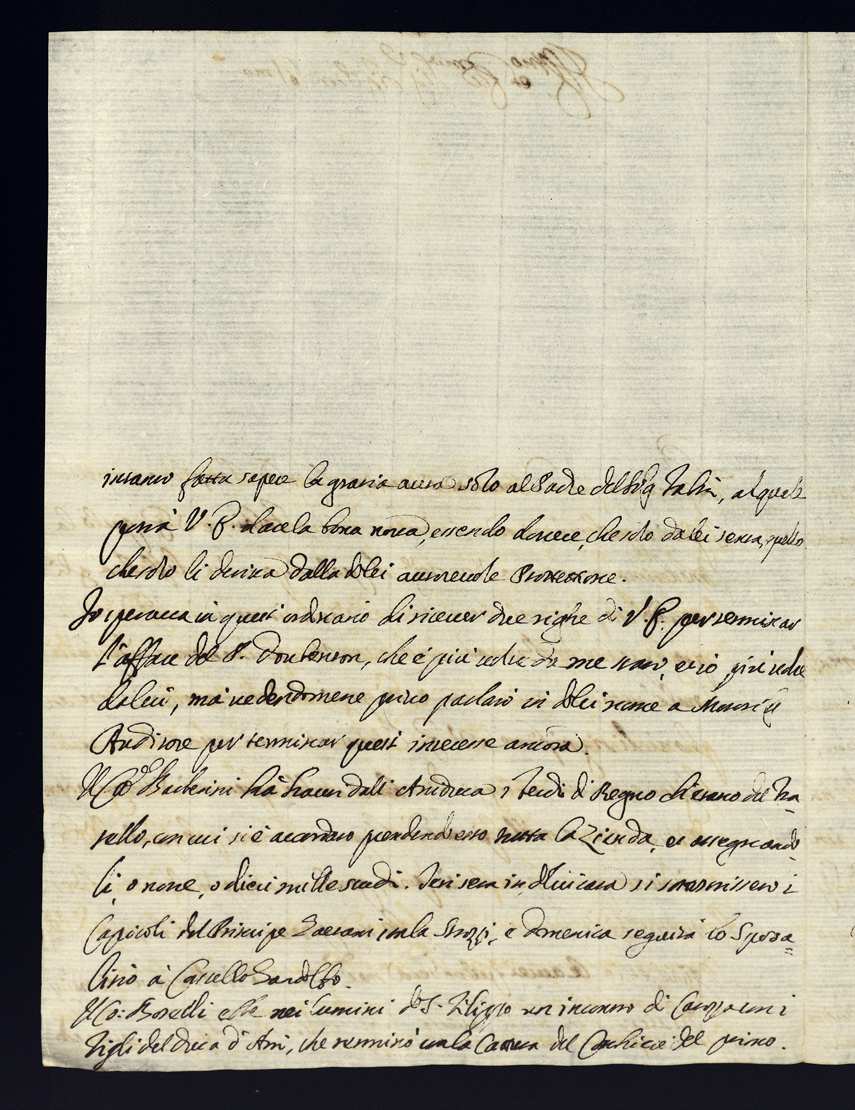 intanto fatta sapere la grazia avuta solo al Padre del Sig.
potrà V. P. dare la bona nova, essendo dovere, che solo da lei senta, quello
che solo li deriva dalla di lei autorevole Protezzione.
Io sperava in quest'ordinario di ricever due righe di V. P. per terminar
l'affare del P. che è più volte da me stato, et io più volte
da lei, mà vedendomene privo parlarò in di lei nome a Monsig.
Auditore per terminar quest'interesse ancora.
Il Co: Barberini hà havuti dall' i feudi di Regno ch'erano del fra
tello, con cui si è accordato prendend'esso tutta l'azienda, et assegnando
li, o nove, o dieci mille scudi. Ieri sera in di lui casa si sottoscrissero i
Capitoli del Principe Gaetani con la Strozzi, e domenica seguirà lo Sposa=
litio à Castello Gandolfo.
Il Co: Borelli ebbe nei lumini di S. Filippo un incontro di con i
figli del Duca d'Atri, che terminò con la del Cochiere del primo.